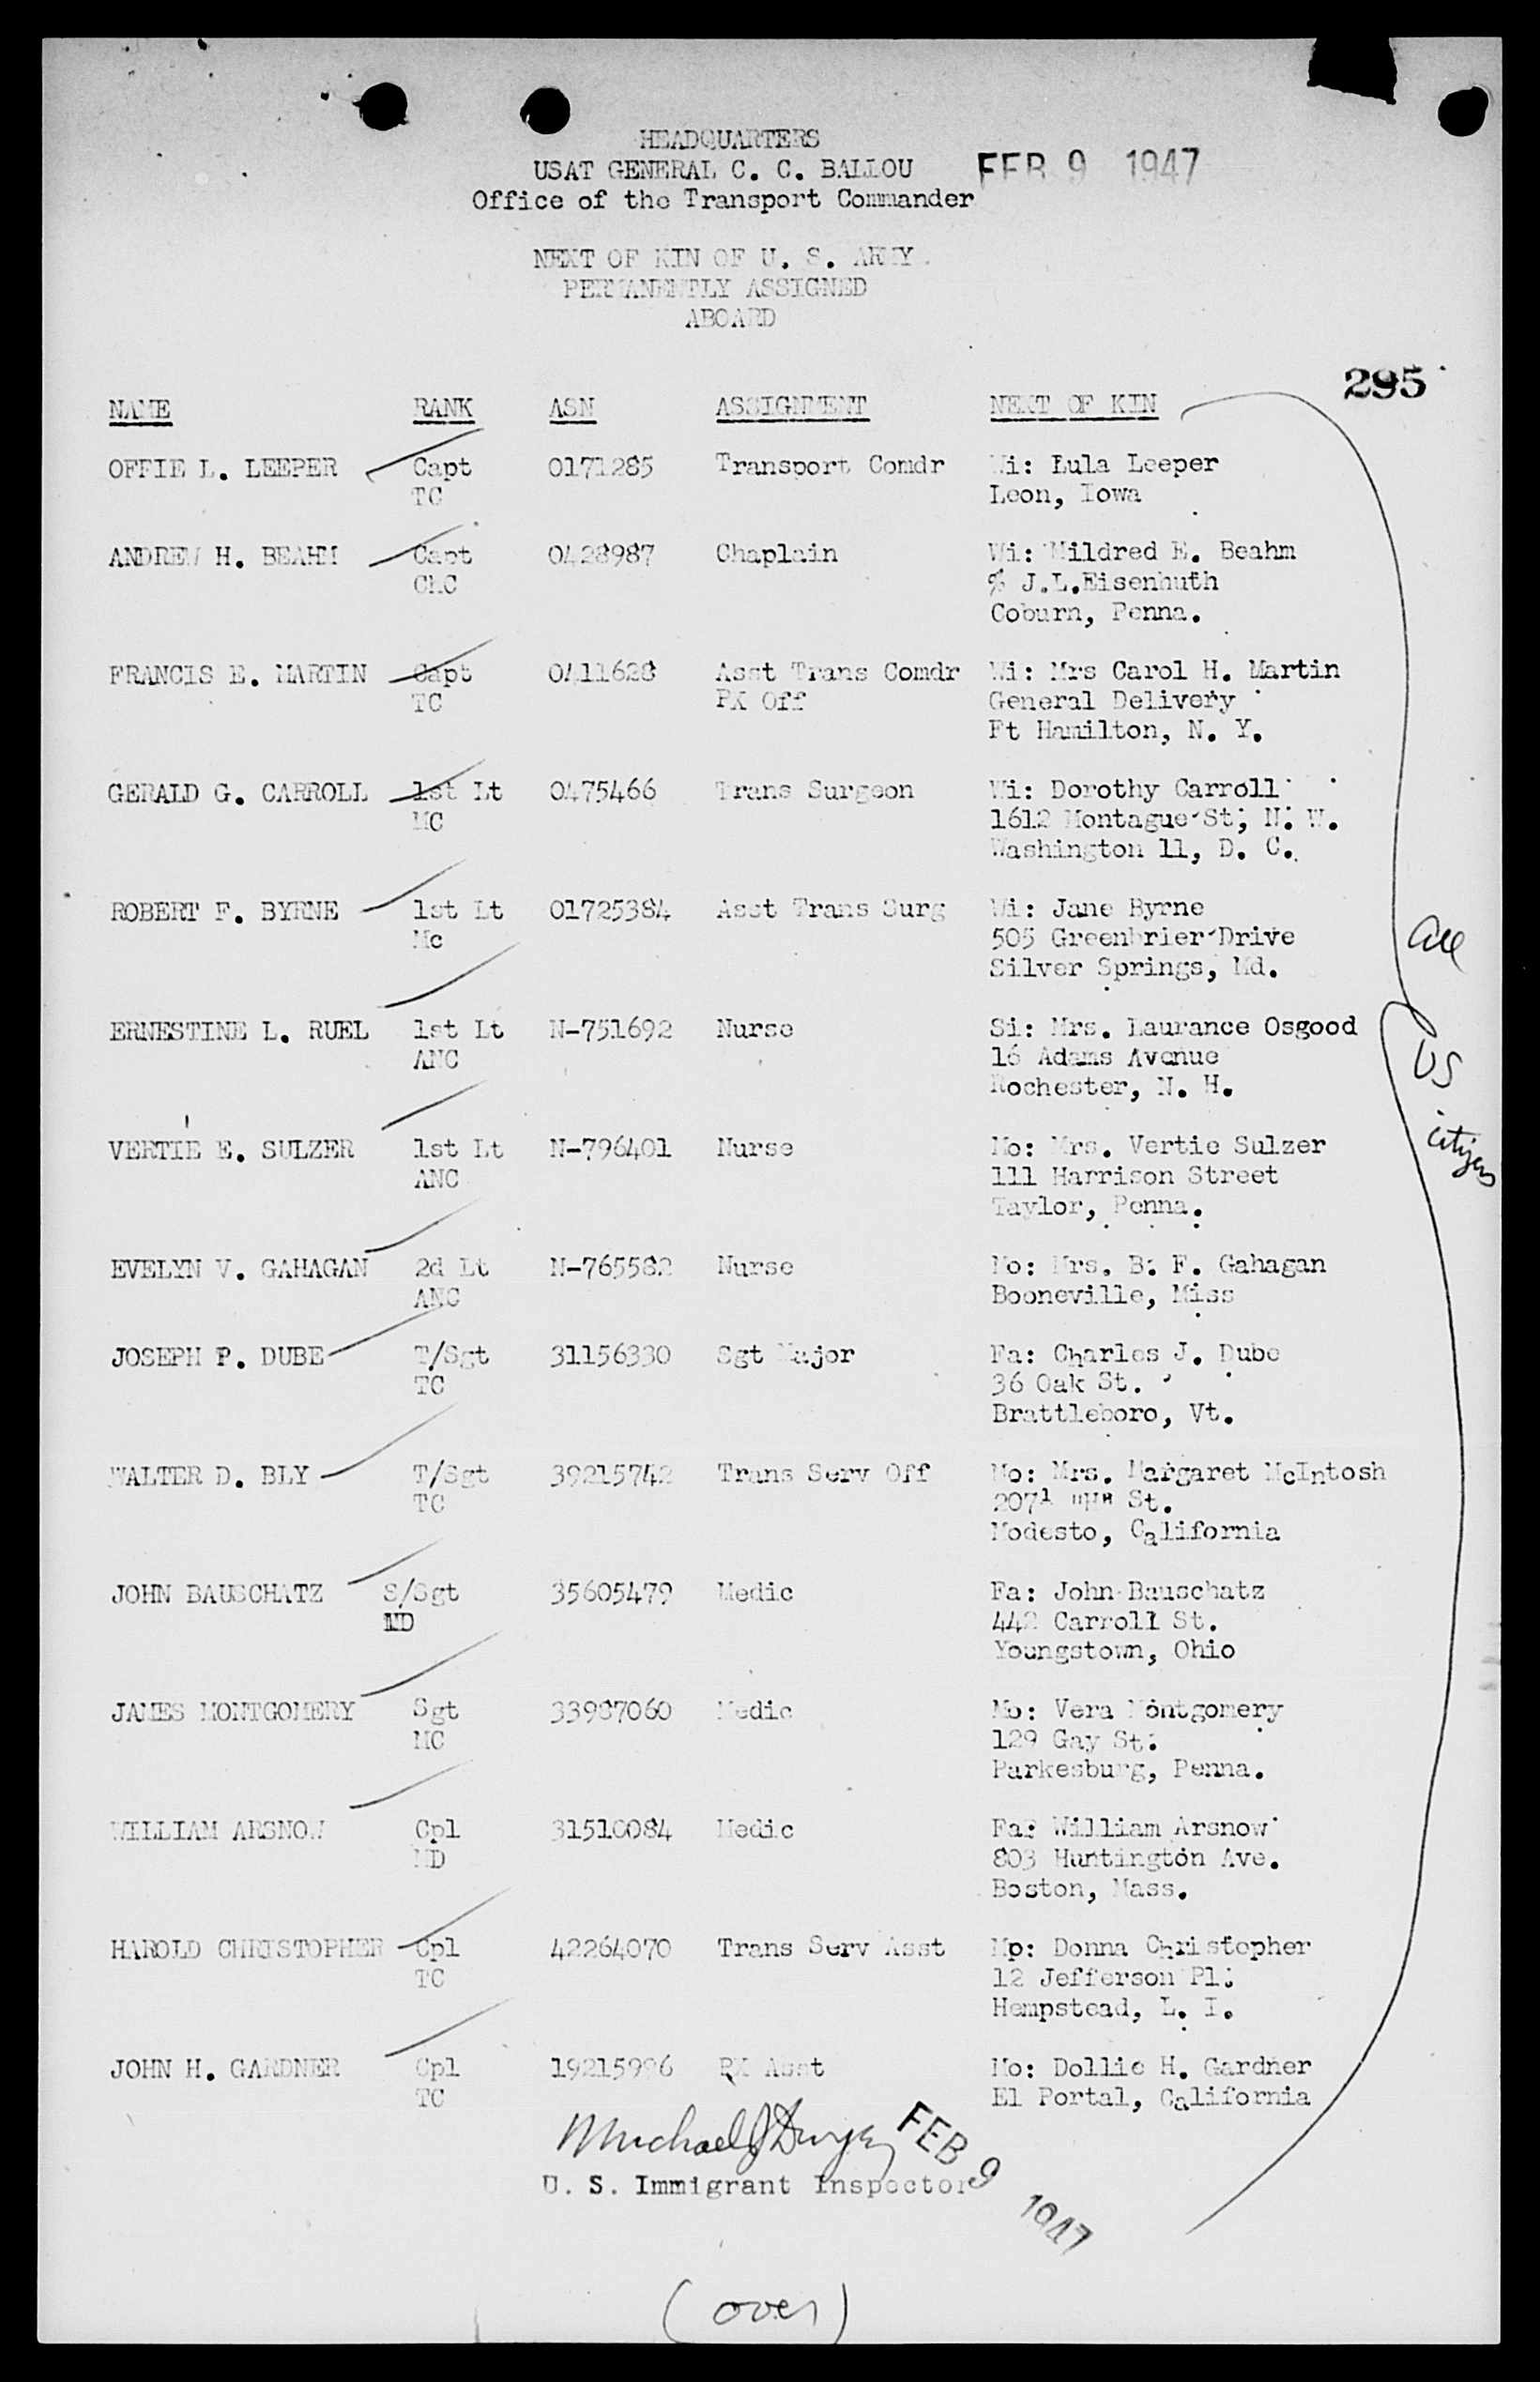 HEADQUARTERS
USAT GENERAL C. C. BALLOU FEB 9 1947
Office of the Transport Commander
NEXT OF KIN OF U. S. ARMY
PERMANENTLY ASSIGNED
ABOARD
295
NAME RANK ASN ASSIGNMENT NEXT OF KIN
OFFIE L. LEEPER Capt 0171285 Transport Comdr Wi: Lula Leeper
TC Leon, Iowa
ANDREW H. BEAHM Capt 0428987 Chaplain Wi: Mildred E. Beahm
ChC % J.L.Eisenhuth
Coburn, Penna.
FRANCIS E. MARTIN Capt 0411628 Asst Trans Comdr Wi: Mrs Carol H. Martin
TC PX Off General Delivery
Ft Hamilton, N. Y.
GERALD G. CARROLL 1st Lt 0475466 Trans Surgeon Wi: Dorothy Carroll
MC 1612 Montague St, N. W.
Washington 11, D. C.
ROBERT F. BYRNE 1st Lt 01725384 Asst Trans Surg Wi: Jane Byrne
Mc 505 Greenbrier Drive
Silver Springs, Md.
all
ERNESTINE L. RUEL 1st Lt N-751692 Nurse Si: Mrs. Laurance Osgood
ANC 16 Adams Avenue
Rochester, N. H.
US
citizens
VERTIE E. SULZER 1st Lt N-796401 Nurse Mo: Mrs. Vertie Sulzer
ANC 111 Harrison Street
Taylor, Penna.
EVELYN V. GAHAGAN 2d Lt N-765582 Nurse Mo: Mrs. B. F. Gahagan
ANC Booneville, Miss
JOSEPH P. DUBE T/Sgt 31156330 Sgt Major Fa: Charles J. Dube
TC 36 Oak St.
Brattleboro, Vt.
WALTER D. BLY T/Sgt 39215742 Trans Serv Off Mo: Mrs. Margaret McIntosh
TC 207½ St.
Modesto, California
JOHN BAUSCHATZ S/Sgt 35605479 Medic Fa: John Bauschatz
MD 442 Carroll St.
Youngstown, Ohio
JAMES MONTGOMERY Sgt 33987060 Medic Mo: Vera Montgomery
MC 129 Gay St.
Parkesburg, Penna.
WILLIAM ARSNOW Cpl 31510084 Medic Fa: William Arsnow
MD 803 Huntington Ave.
Boston, Mass.
HAROLD CHRISTOPHER Cpl 42264070 Trans Serv Asst Mo: Donna Christopher
TC 12 Jefferson Pl.
Hempstead, L. I.
JOHN H. GARDNER Cpl 19215996 PX Asst Mo: Dollie H. Gardner
TC El Portal, California
Michael J Dwyer FEB 9 1947
U. S. Immigrant Inspector
(over)